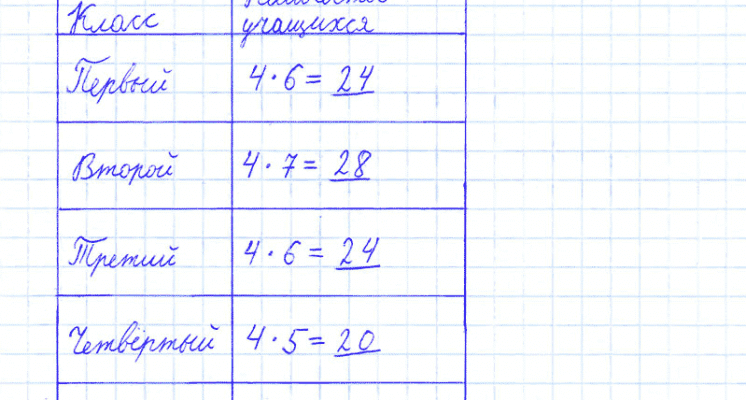 Класс
учащихся
Первый 4·6=24
Второй 4·7=28
Третий 4·6=24
Четвёртый 4·5=20